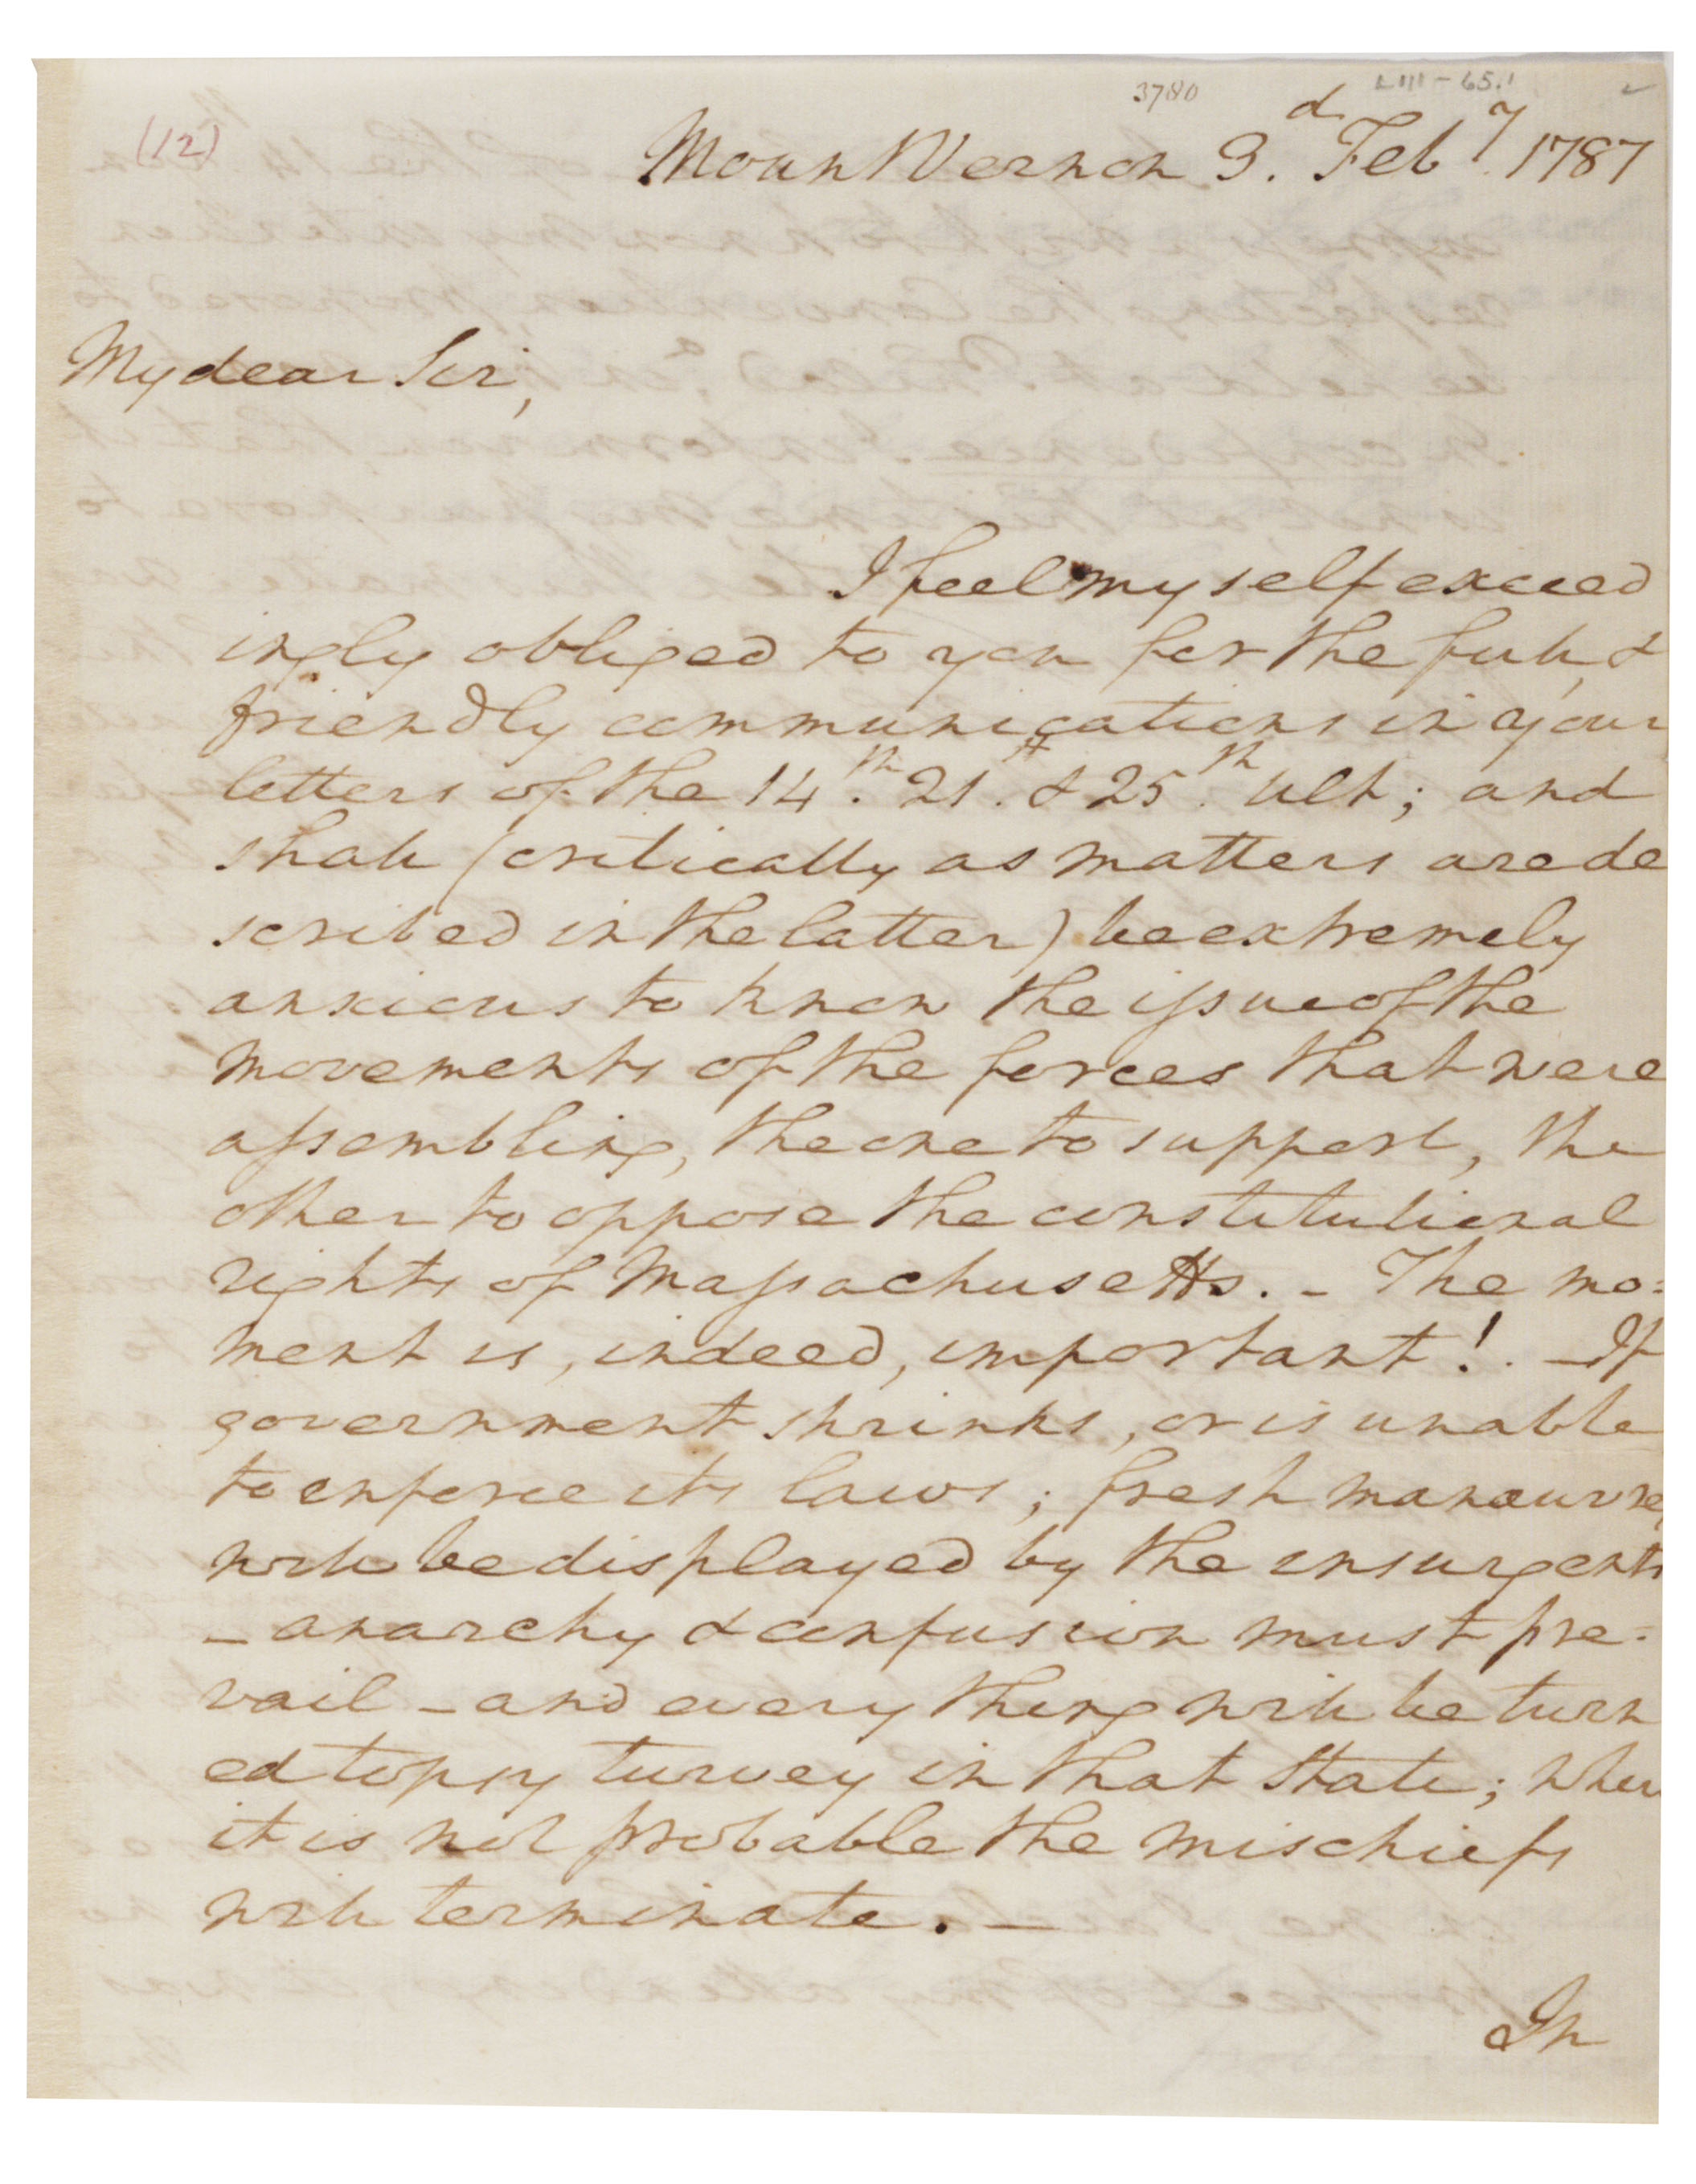 3780
LIII-65.1
(12)
Mount Vernon 3.d Feby. 1787
My dear Sir,
I feel myself exceed
ingly obliged to you for the full, &
friendly communications in your
letters of the 14.th 21.st & 25.th ult; and
shall (critically as matters are de
scribed in the latter) be extremely
anxious to know the issue of the
movements of the forces that were
assembling, the one to support, the
other to oppose the constitutional
rights of Massachusetts. – The mo=
ment is, indeed, important! . – If
government shrinks, or is unable
to enforce its laws; fresh manœuvres
will be displayed by the insurgents
– anarchy & confusion must pre=
vail – and every thing will be turn
ed topsy turvey in that State; where
it is not probable the mischiefs
will terminate. –
In